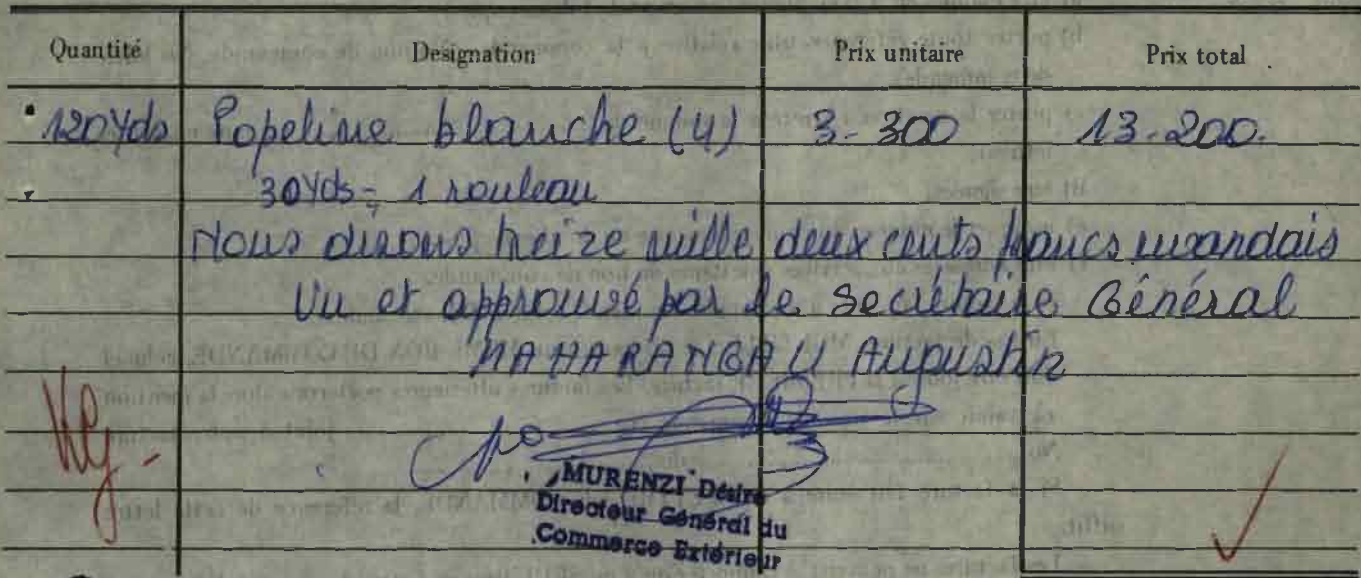 Quantité Designation Prix unitaire Prix total
120Yds Popeline blanche (4) 3.300 13.200.
30Yds = 1 rouleau
Nous disons treize mille deux cents francs rwandais
Vu et approuvé par le Secrétaire Général
MAHARANGALI Augustin
po
MURENZI Désiré
Directeur Général du
Commerce Extérieur